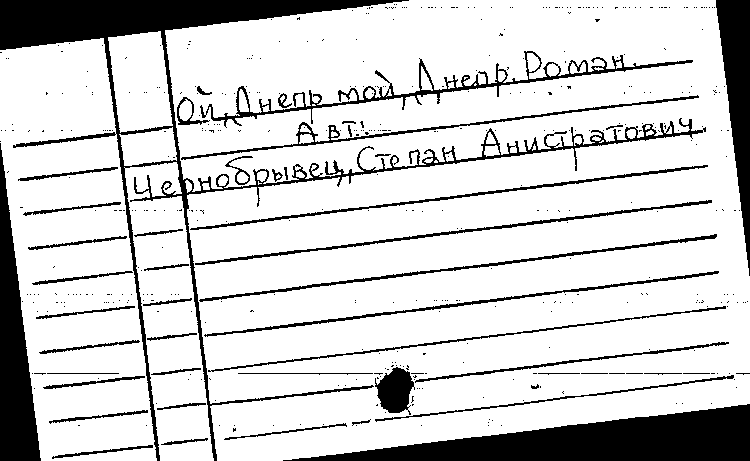 Ой, Днепр мой, Днепр. Роман.
Авт.:
Чернобрывец, Степан Анистратович